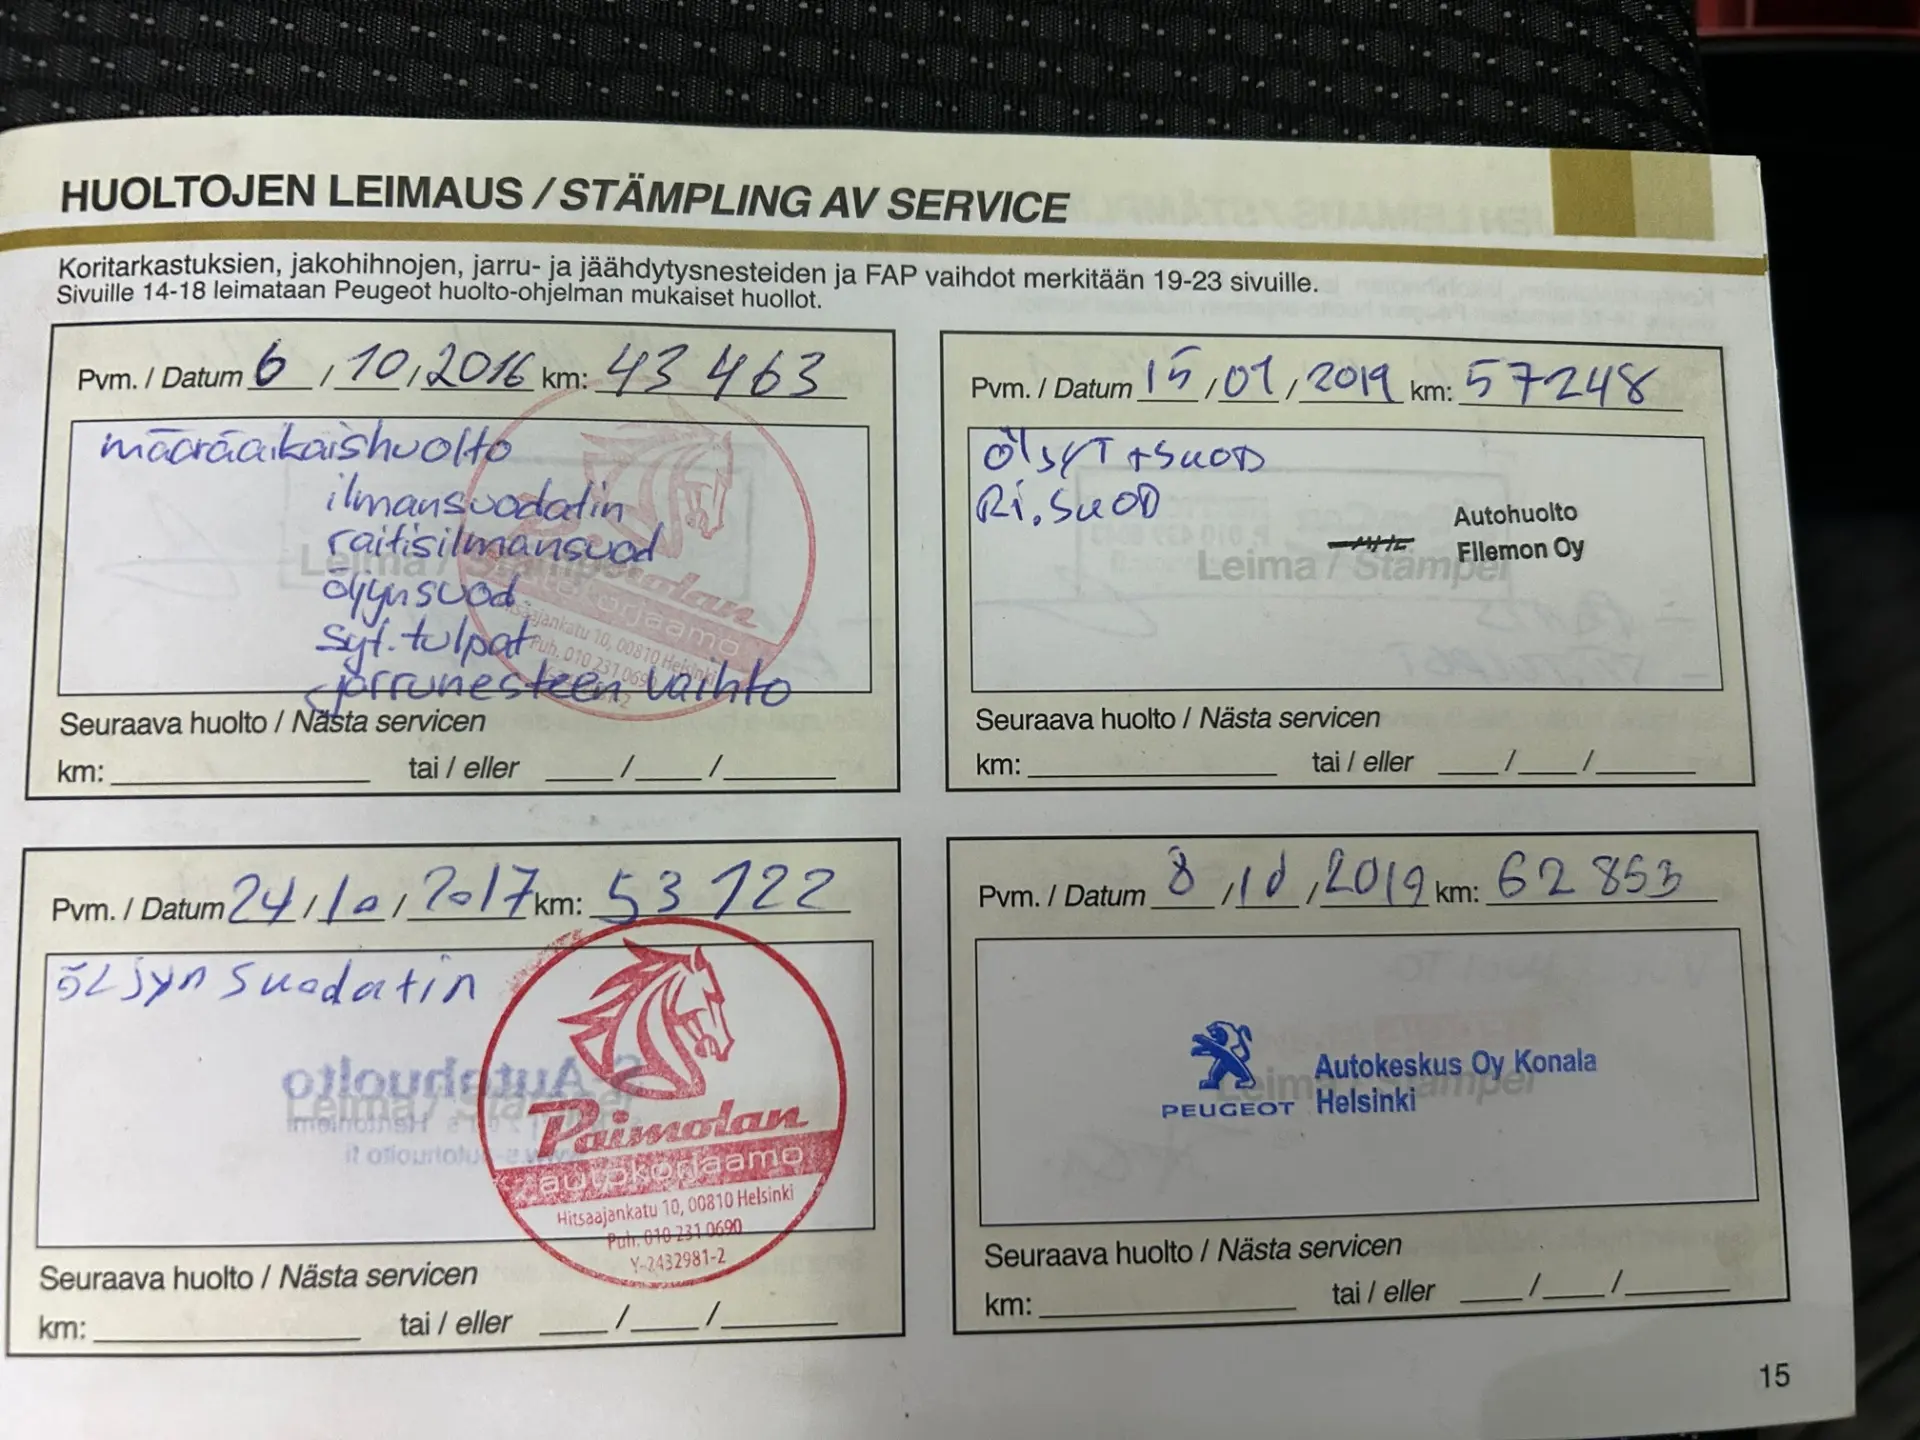 HUOLTOJEN LEIMAUS / STÄMPLING AV SERVICE
Koritarkastuksien, jakohihnojen, jarru- ja jäähdytysnesteiden ja FAP vaihdot merkitään 19-23 sivuille.
Sivuille 14-18 leimataan Peugeot huolto-ohjelman mukaiset huollot.
Pvm. / Datum 6 / 10 / 2016 km: 43 463
määräaikaishuolto
ilmansuodatin
raitisilmansuod
öljynsuod.
syt. tulpat
jarrunesteen vaihto
Leima / Stämpel
Paimolan
autokorjaamo
Hitsaajankatu 10, 00810 Helsinki
Puh. 010 231 0690
Seuraava huolto / Nästa servicen
km: tai / eller / /
Pvm. / Datum 15 / 01 / 2019 km: 57248
ÖlJYT + SUOD
Ri. SUOD
Autohuolto
Filemon Oy
Leima / Stämpel
Seuraava huolto / Nästa servicen
km: tai / eller / /
Pvm. / Datum 24 / 10 / 2017 km: 53 122
öLjyn suodatin
Leima / Stämpel
Paimolan
autokorjaamo
Hitsaajankatu 10, 00810 Helsinki
Puh. 010 231 0690
Y-2432981-2
Seuraava huolto / Nästa servicen
km: tai / eller / /
Pvm. / Datum 8 / 10 / 2019 km: 62 853
PEUGEOT
Autokeskus Oy Konala
Helsinki
Leima / Stämpel
Seuraava huolto / Nästa servicen
km: tai / eller / /
15